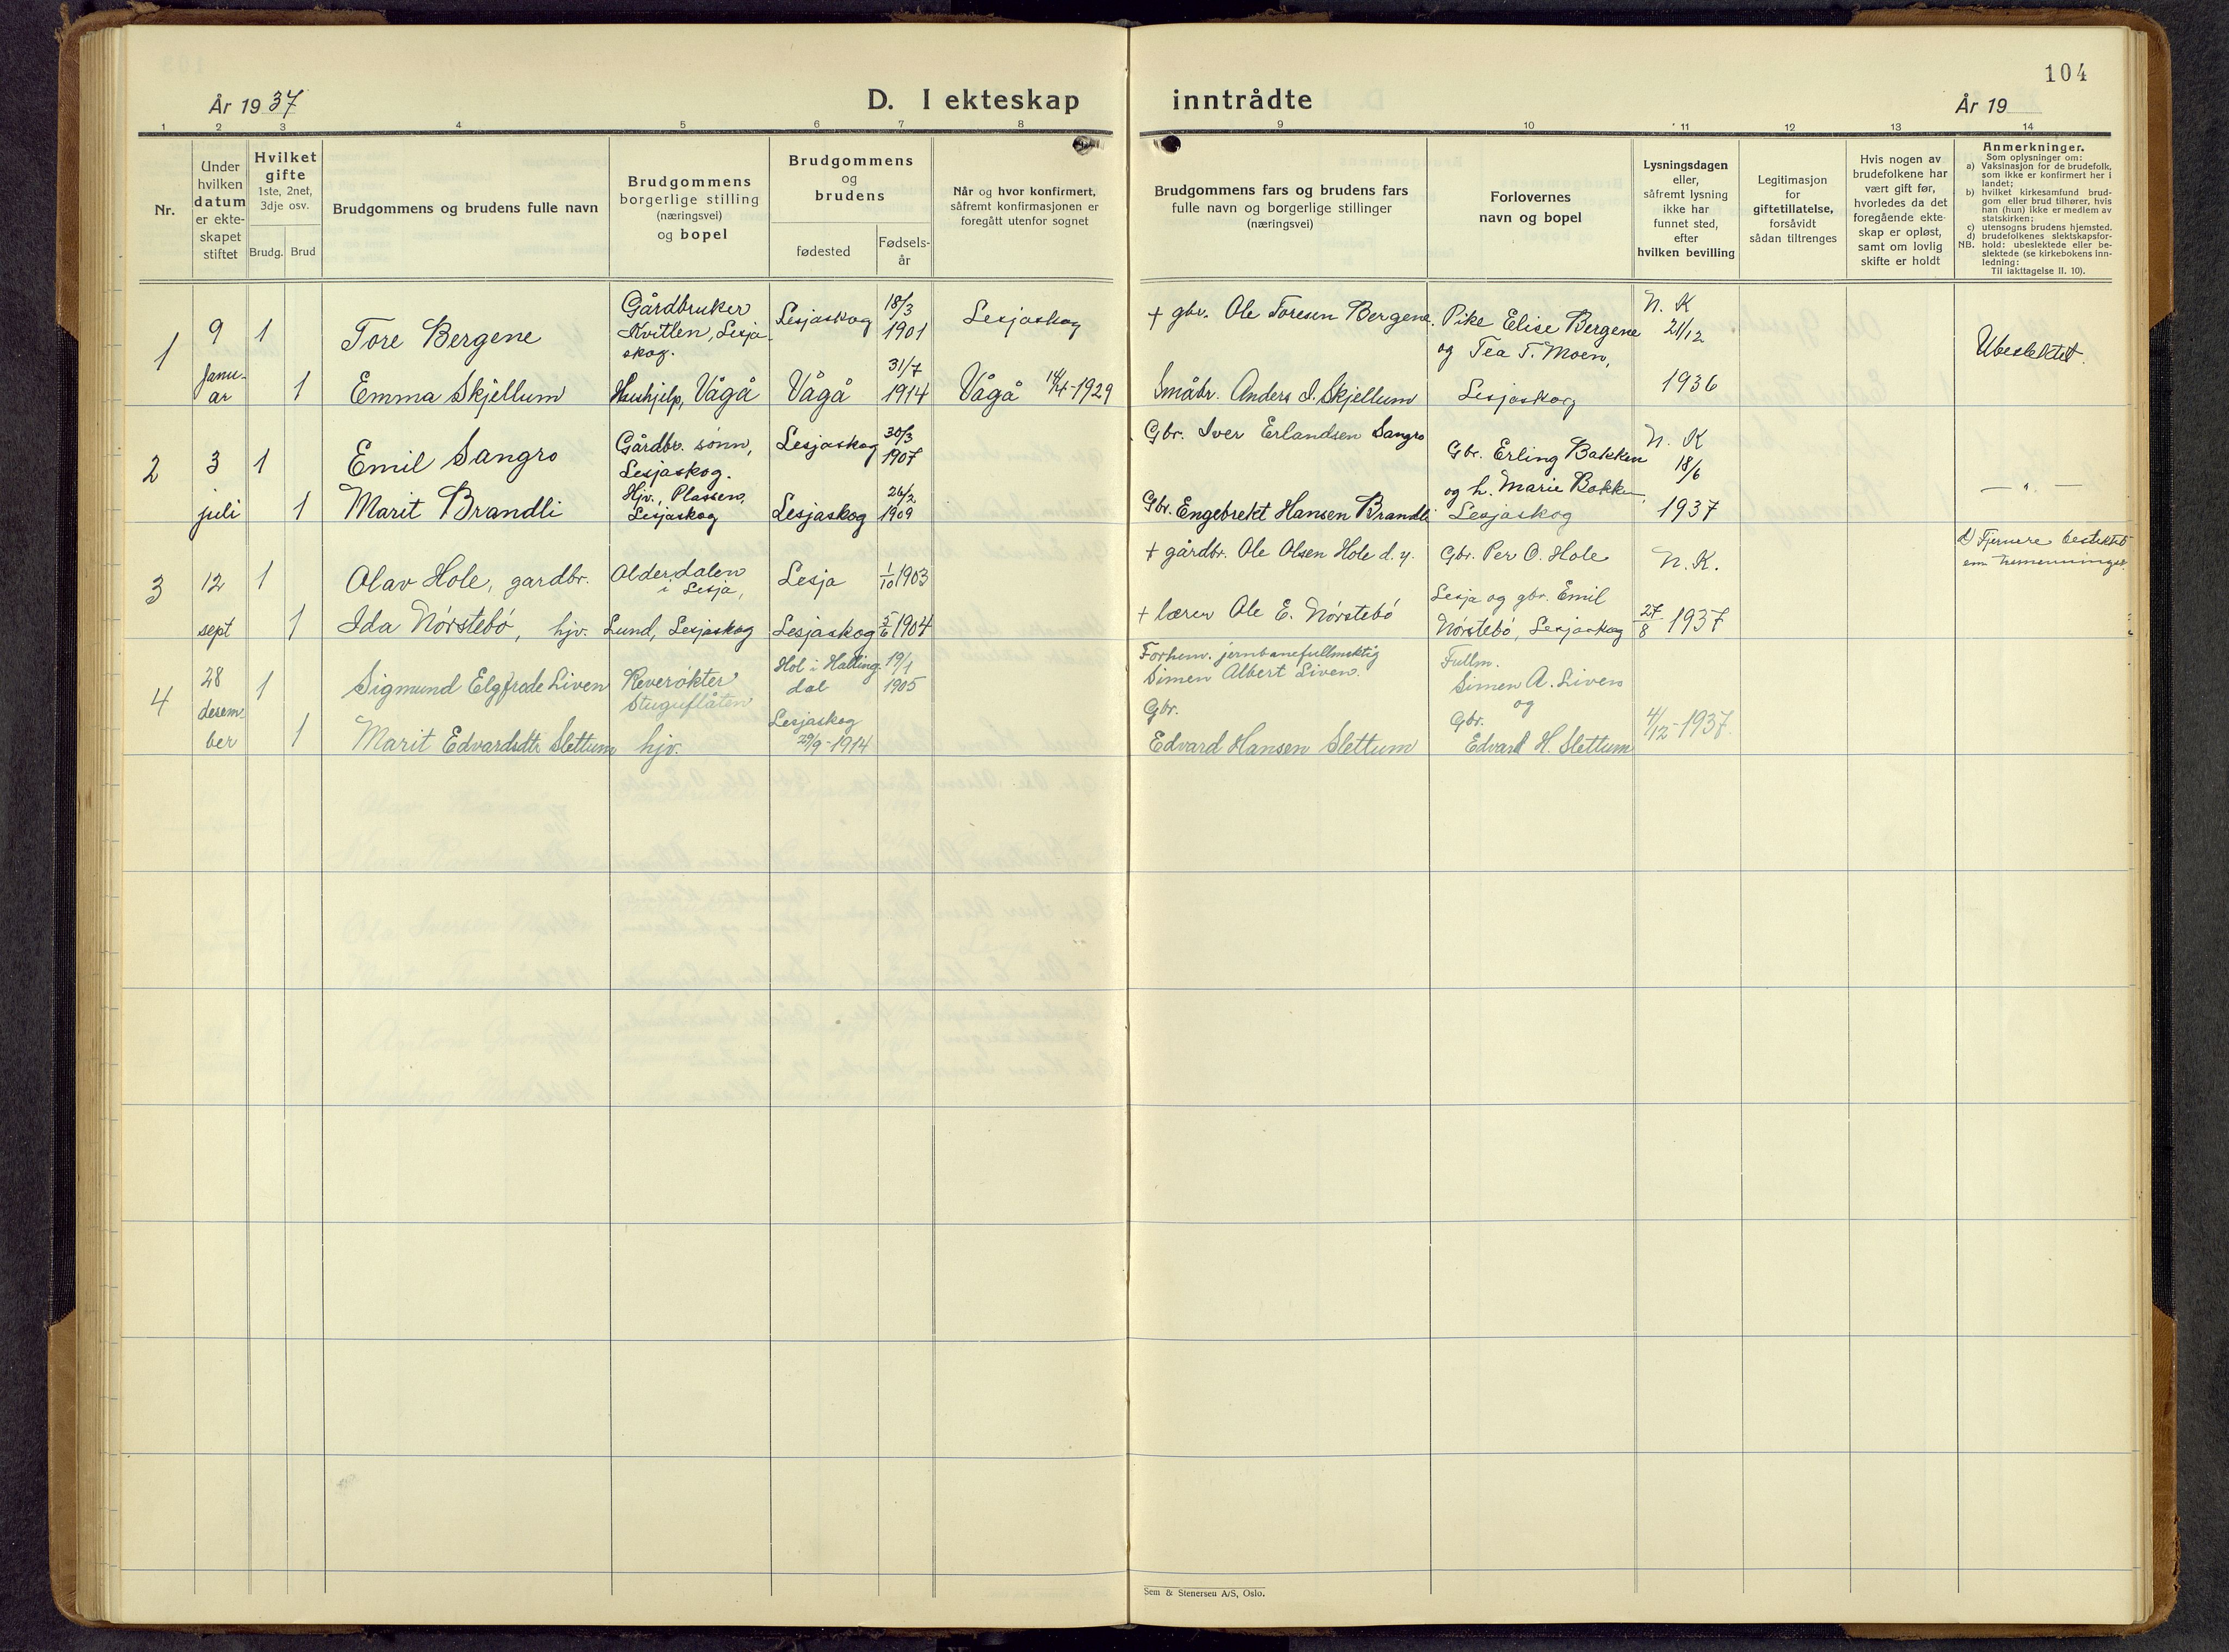 104
År 1937
D. I ekteskap inntrådte
År 19
1 2 3 4 5 6 7 8 9 10 11 12 13 14
Nr.
Under
hvilken
datum
er ekte-
skapet
stiftet
Hvilket
gifte
1ste, 2net,
3dje osv.
Brudg. Brud
Brudgommens og brudens fulle navn
Brudgommens
borgerlige stilling
(næringsvei)
og bopel
Brudgommens
og
brudens
fødested
Fødsels-
år
Når og hvor konfirmert,
såfremt konfirmasjonen er
foregått utenfor sognet
Brudgommens fars og brudens fars
fulle navn og borgerlige stillinger
(næringsvei)
Forlovernes
navn og bopel
Lysningsdagen
eller,
såfremt lysning
ikke har
funnet sted,
efter
hvilken bevilling
Legitimasjon
for
giftetillatelse,
forsåvidt
sådan tiltrenges
Hvis nogen av
brudefolkene har
vært gift før,
hvorledes da det
foregående ekte-
skap er opløst,
samt om lovlig
skifte er holdt
Anmerkninger.
Som oplysninger om:
a) Vaksinasjon for de brudefolk,
som ikke er konfirmert her i
landet;
b) hvilket kirkesamfund brud-
gom eller brud tilhører, hvis
han (hun) ikke er medlem av
statskirken;
c) utensogns brudens hjemsted.
d) brudefolkenes slektskapsfor-
NB. hold: ubeslektede eller be-
slektede (se kirkebokens inn-
ledning:
Til iakttagelse II. 10).
1
9
janu-
ar
1
Tore Bergene
Gårdbruker
Kvitlen, Lesja-
skog.
Lesjaskog
18/3
1901
Lesjaskog
+ gbr. Ole Toresen Bergene.
Pike Elise Bergene
og Tea T. Moen,
Lesjaskog
N. K
21/12
1936
Ubeslektet.
1
Emma Skjellum
Hushjelp, Vågå
Vågå
31/7
1914
Vågå 14/4-1929
Småbr. Anders I. Skjellum
2
3
juli
1
Emil Sangro
Gårdbr. sønn,
Lesjaskog.
Lesjaskog
30/3
1907
Gbr. Iver Erlandsen Sangro
Gbr. Erling Bakken
og h. Marie Bakken,
Lesjaskog
N. K
18/6
1937
— " —
1
Marit Brandli
Hjv., Plassen,
Lesjaskog
Lesjaskog
26/2
1909
Gbr. Engebrekt Hansen Brandli
3
12
sept
1
Olav Hole, gardbr.
Alderdalen
i Lesja,
Lesja
1/10 1903
+ gårdbr. Ole Olsen Hole d. y.
Gbr. Per O. Hole
Lesja og gbr. Emil
Nørstebø, Lesjaskog
N. K.
27/8 1937
d) Fjernere beslektet
enn tremenninger.
1
Ida Nørstebø, hjv.
Lund, Lesjaskog
Lesjaskog
5/6 1904
+ lærer Ole E. Nørstebø
4
28
desem-
ber
1
Sigmund Elgfrode Liven
Reverøkter
Stuguflåten
Hol i Halling-
dal
19/1
1905
Forhen. jernbanefullmektig
Simen Albert Liven.
Fullm.
Simen A. Liven
og
Gbr.
Edvard H. Slettum
4/12-1937.
1
Marit Edvardsdtr Slettum
hjv.
Lesjaskog
29/9-1914
Gbr.
Edvard Hansen Slettum
Sem & Stenersen A/S, Oslo.